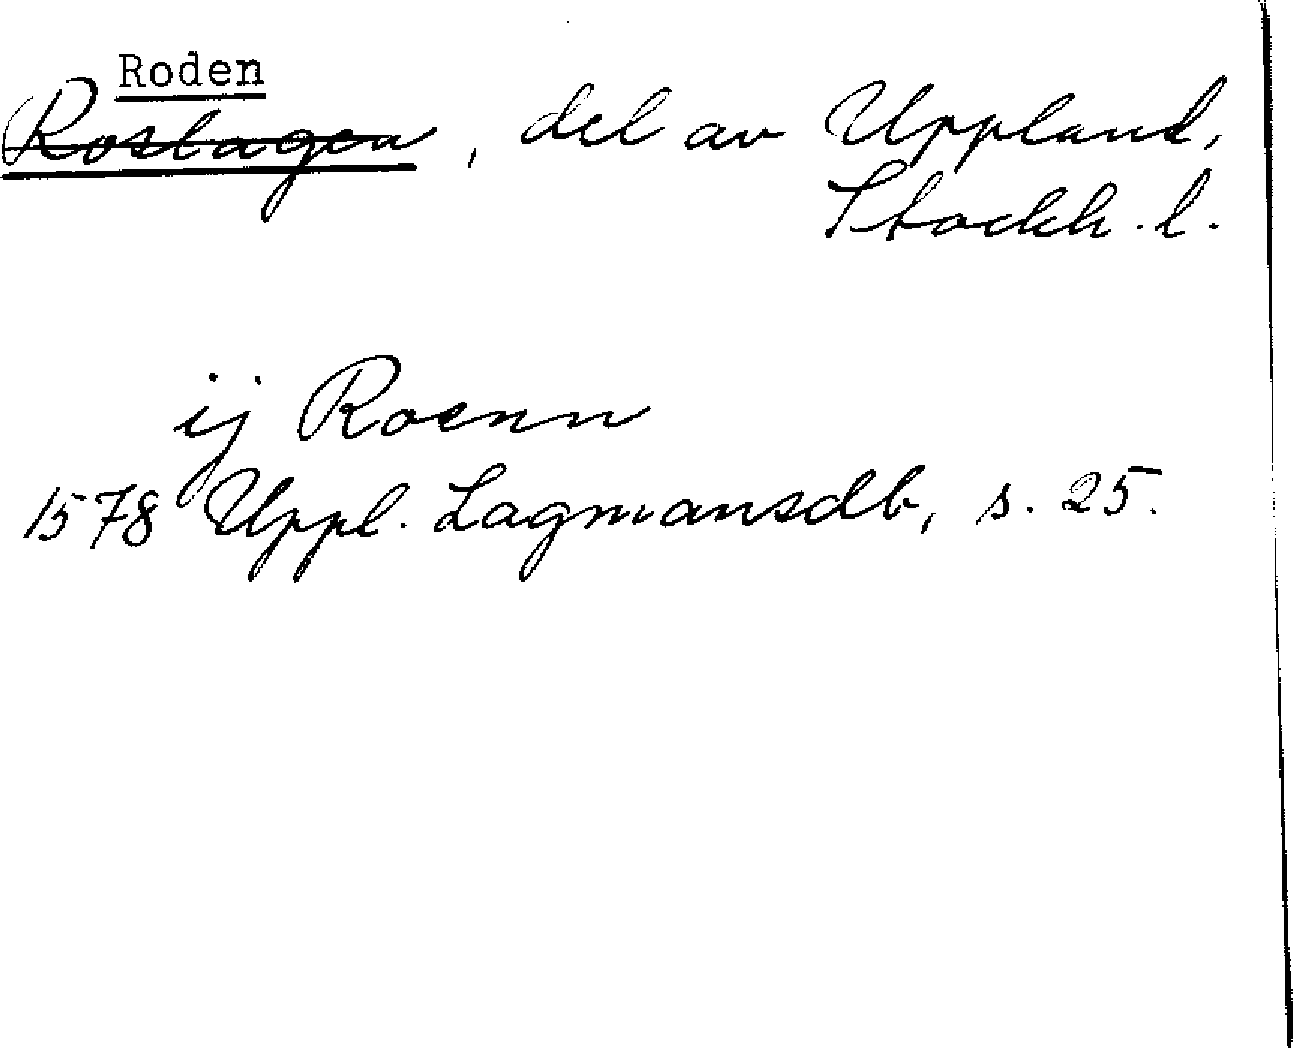 Roden
Roslagen, del av Uppland,
Stockh. l.
ij Roenn
1578 Uppl. Lagmansdb, s. 25.